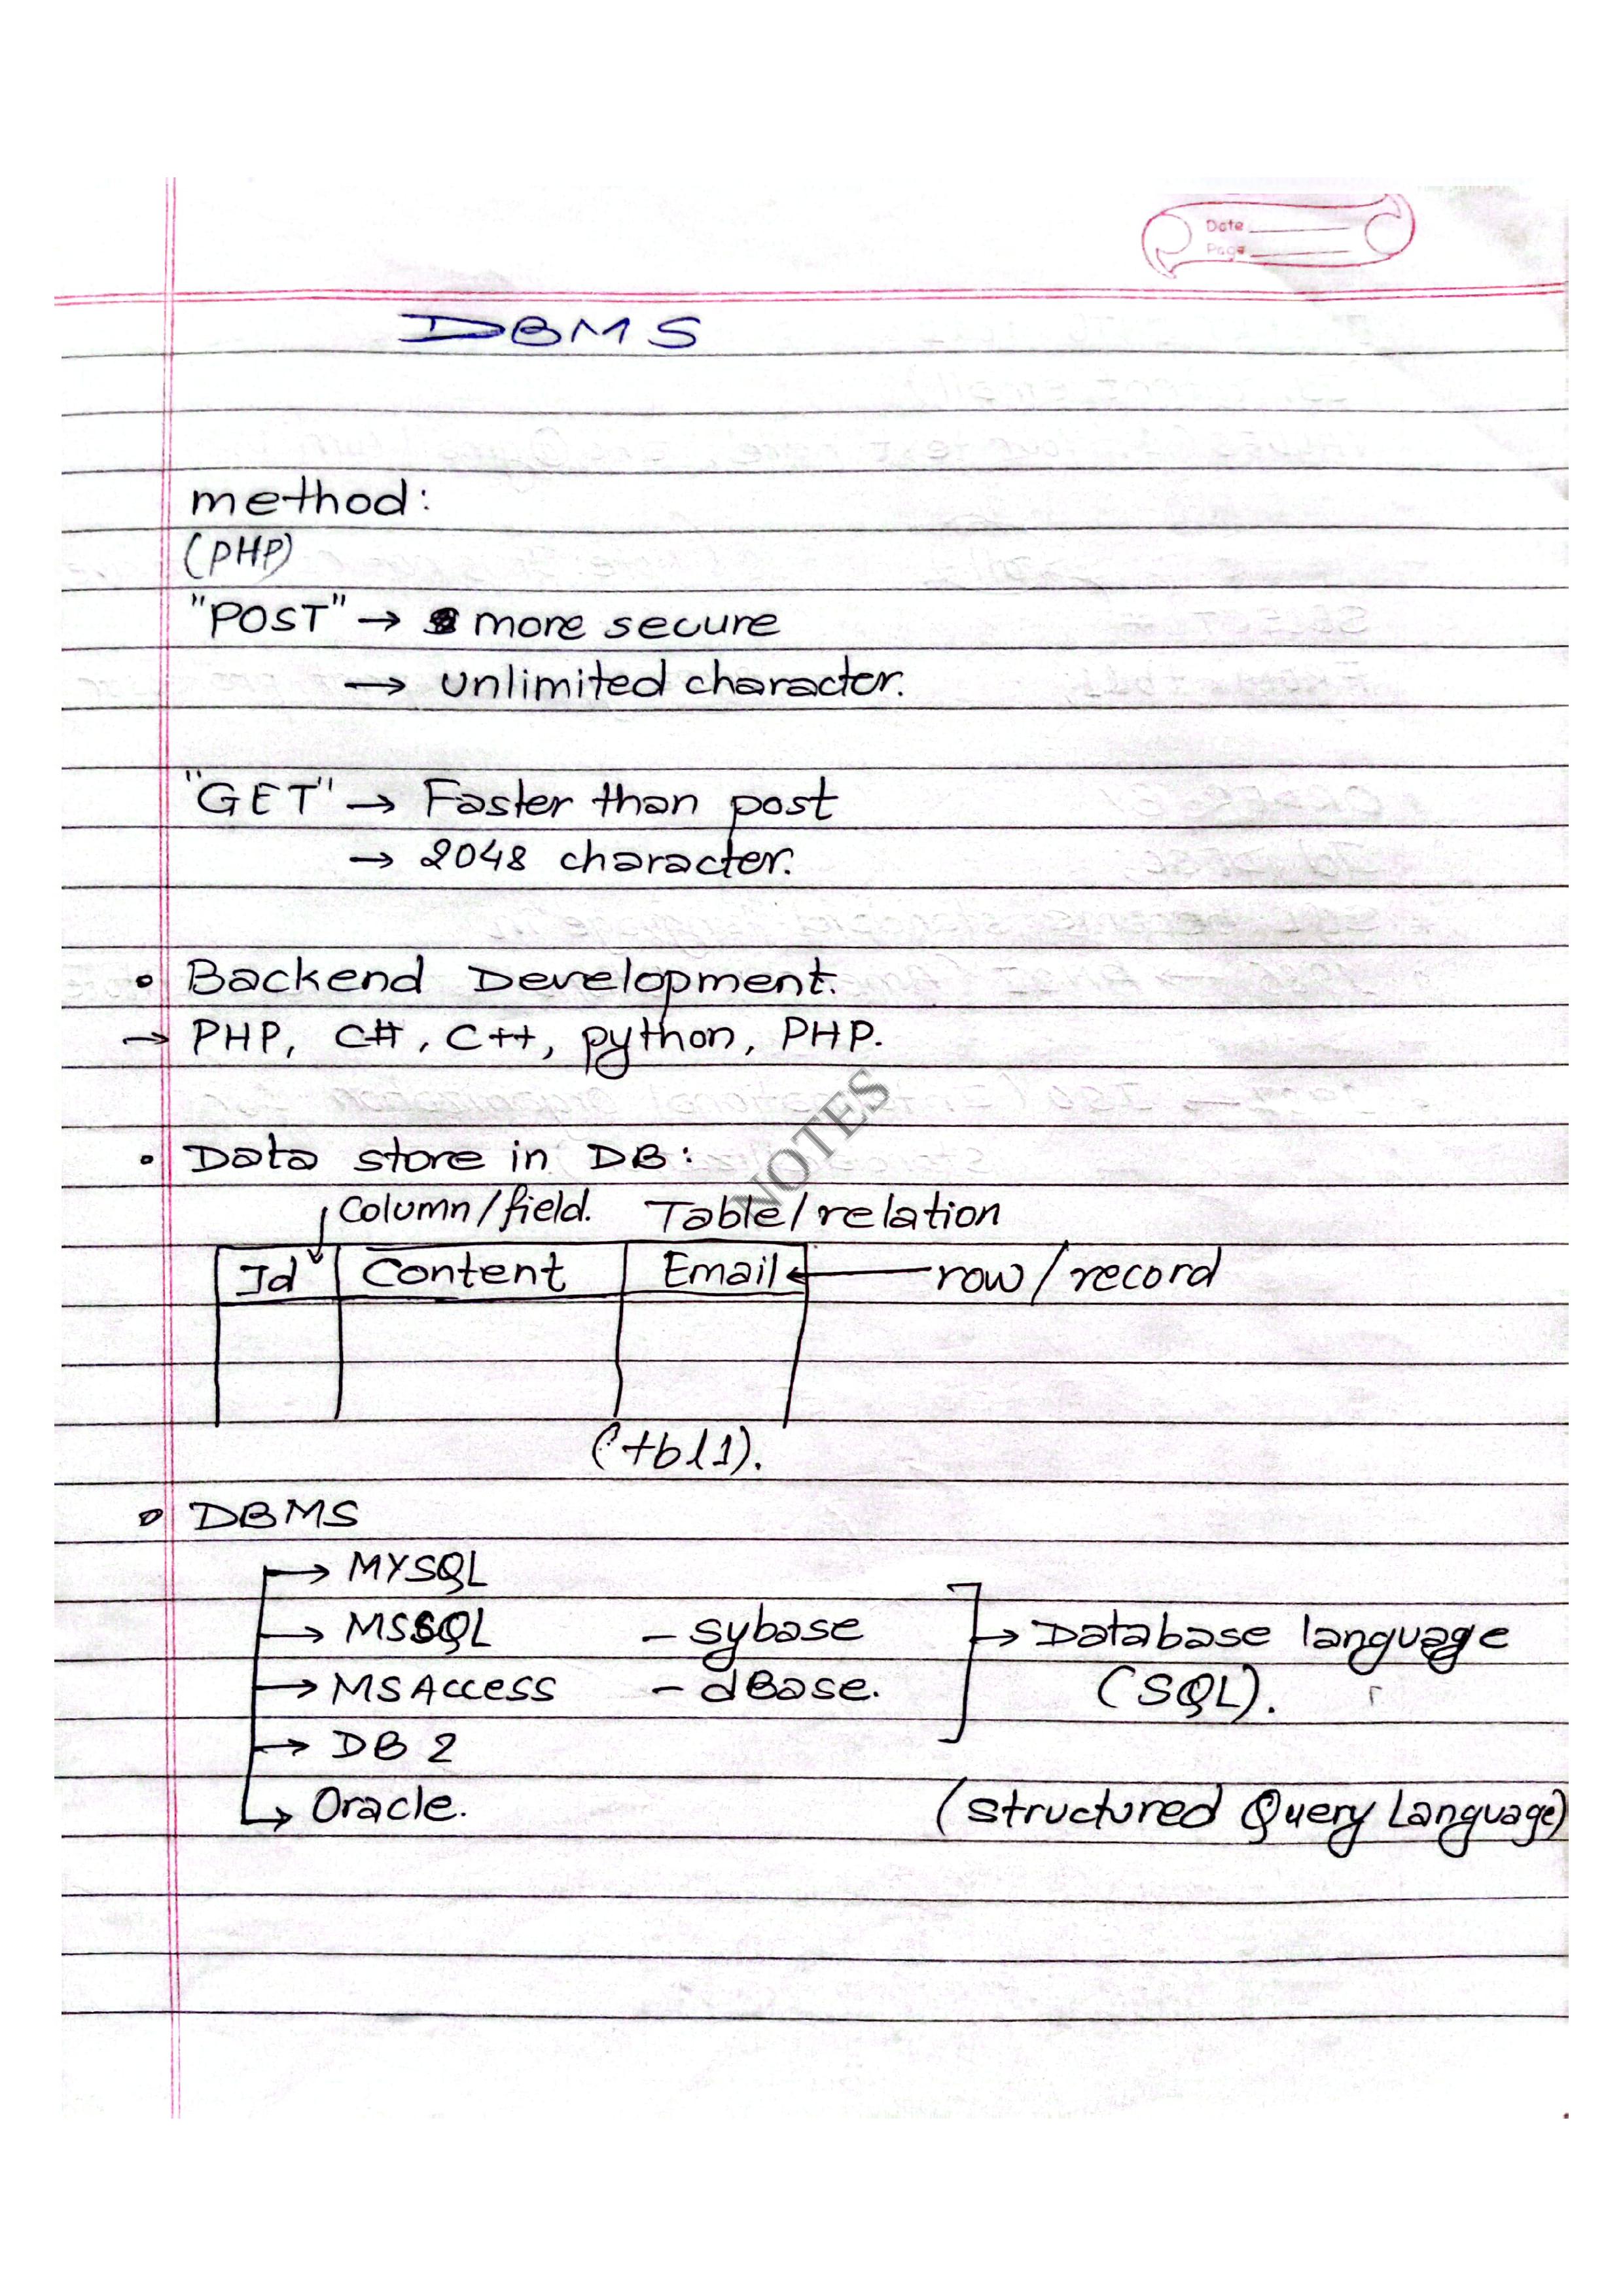 Date
Page
DBMS
method:
(PHP)
"POST" → more secure
→ unlimited character.
"GET" → Faster than post
→ 2048 character.
• Backend Development.
→ PHP, C#, C++, python, PHP.
NOTES
• Data store in DB:
Column/field. Table/relation
Id Content Email ← row/record
(tbl1).
• DBMS
→ MYSQL
→ MSSQL - sybase → Database language
→ MSAccess - dBase. (SQL).
→ DB 2
→ Oracle. (structured Query Language)